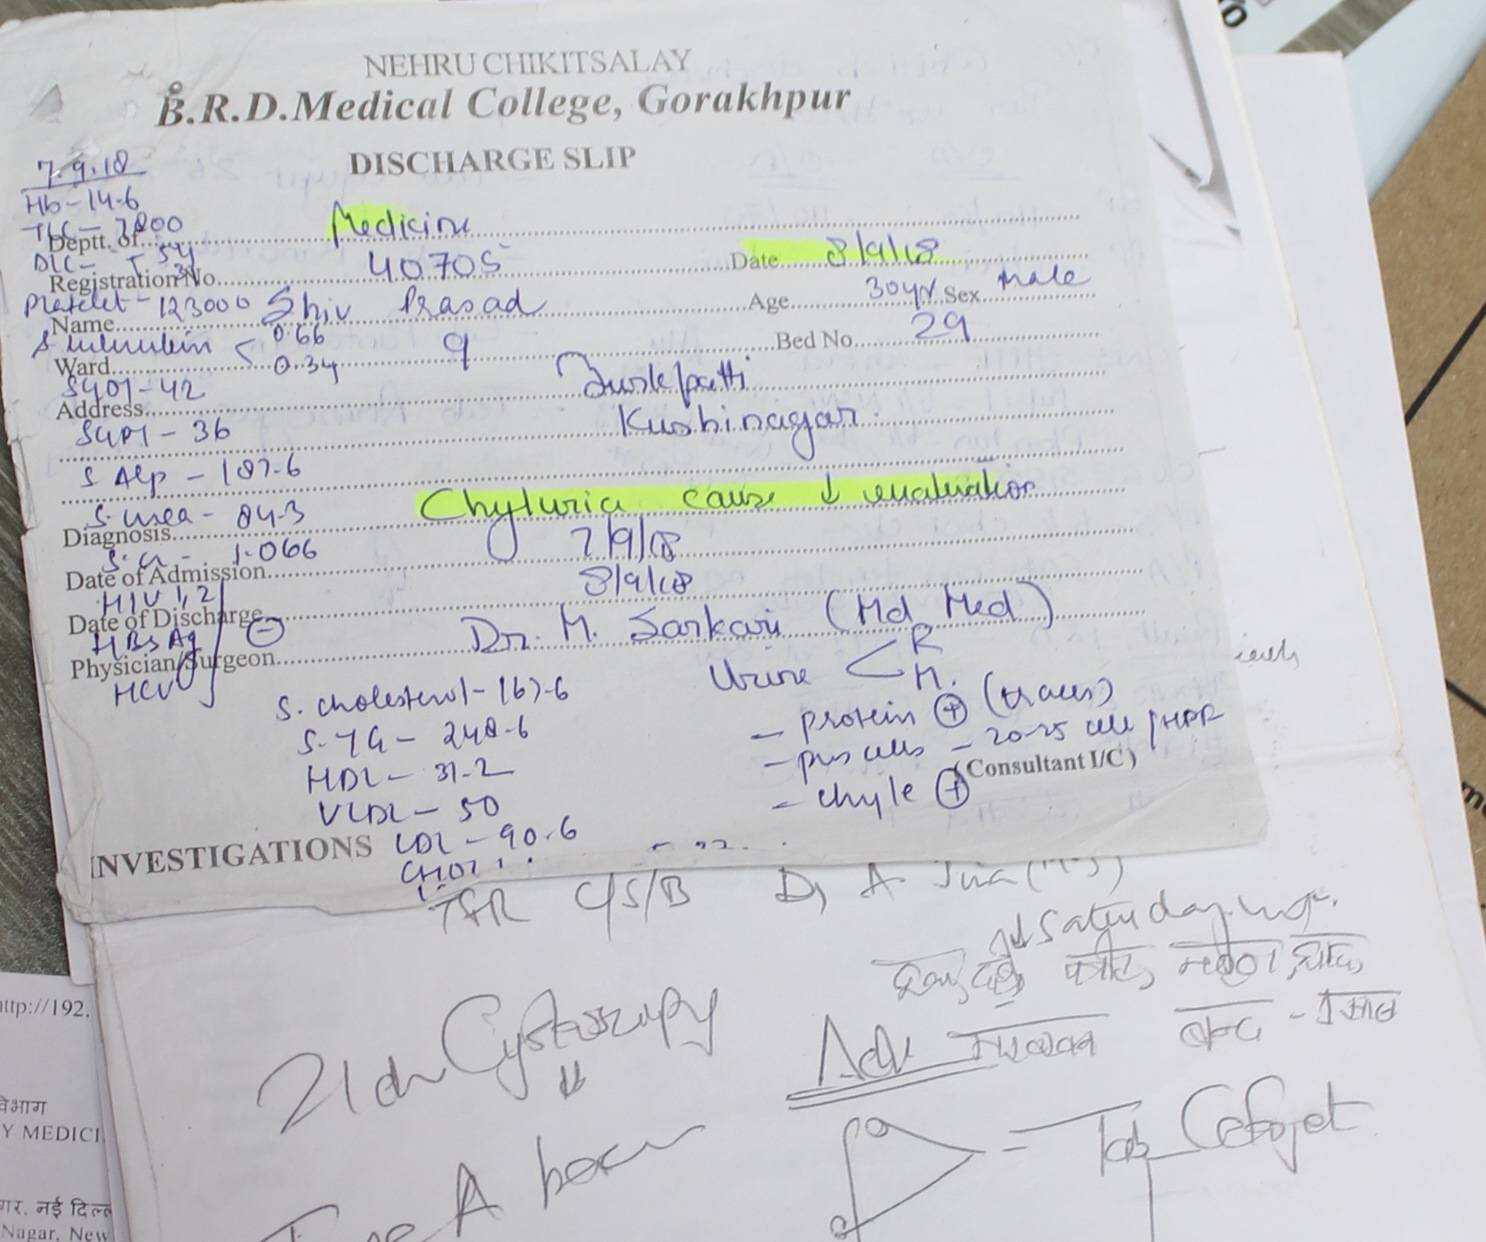 NEHRU CHIKITSALAY
B.R.D.Medical College, Gorakhpur
DISCHARGE SLIP
7.9.18
Hb-14.6
TLC-7800
Deptt. of Medicine
DLC-
Registration No. 40705 Date 8/9/18
Platelet-123000
Name Shiv Prasad Age 30yr Sex Male
0.66
Ward 9 Bed No. 29
0.34
SGOT-42
Address
Kushinagar
SGPT-36
S Alp-187.6
S.urea-
Diagnosis Chyluria cause ↓ evaluation
1.066
Date of Admission 7/9/18
HIV 1,2
Date of Discharge 8/9/18
HBsAg
Physician/Surgeon Dr. M. Sarkari (Md Med)
HCV
Urine R
M.
S. cholesterol-167.6
- protein + (traces)
S.TG-248.6
- pus cells - 20-25 cell/HPF
HDL-31.2
(Consultant I/C)
- chyle +
VLDL-50
INVESTIGATIONS LDL-90.6
C/S/B Dr A.
Saturday
Cystoscopy
Adv
Tab
A
http://192.
विभाग
Y MEDICI
गर, नई दिल्ल
Nagar, New